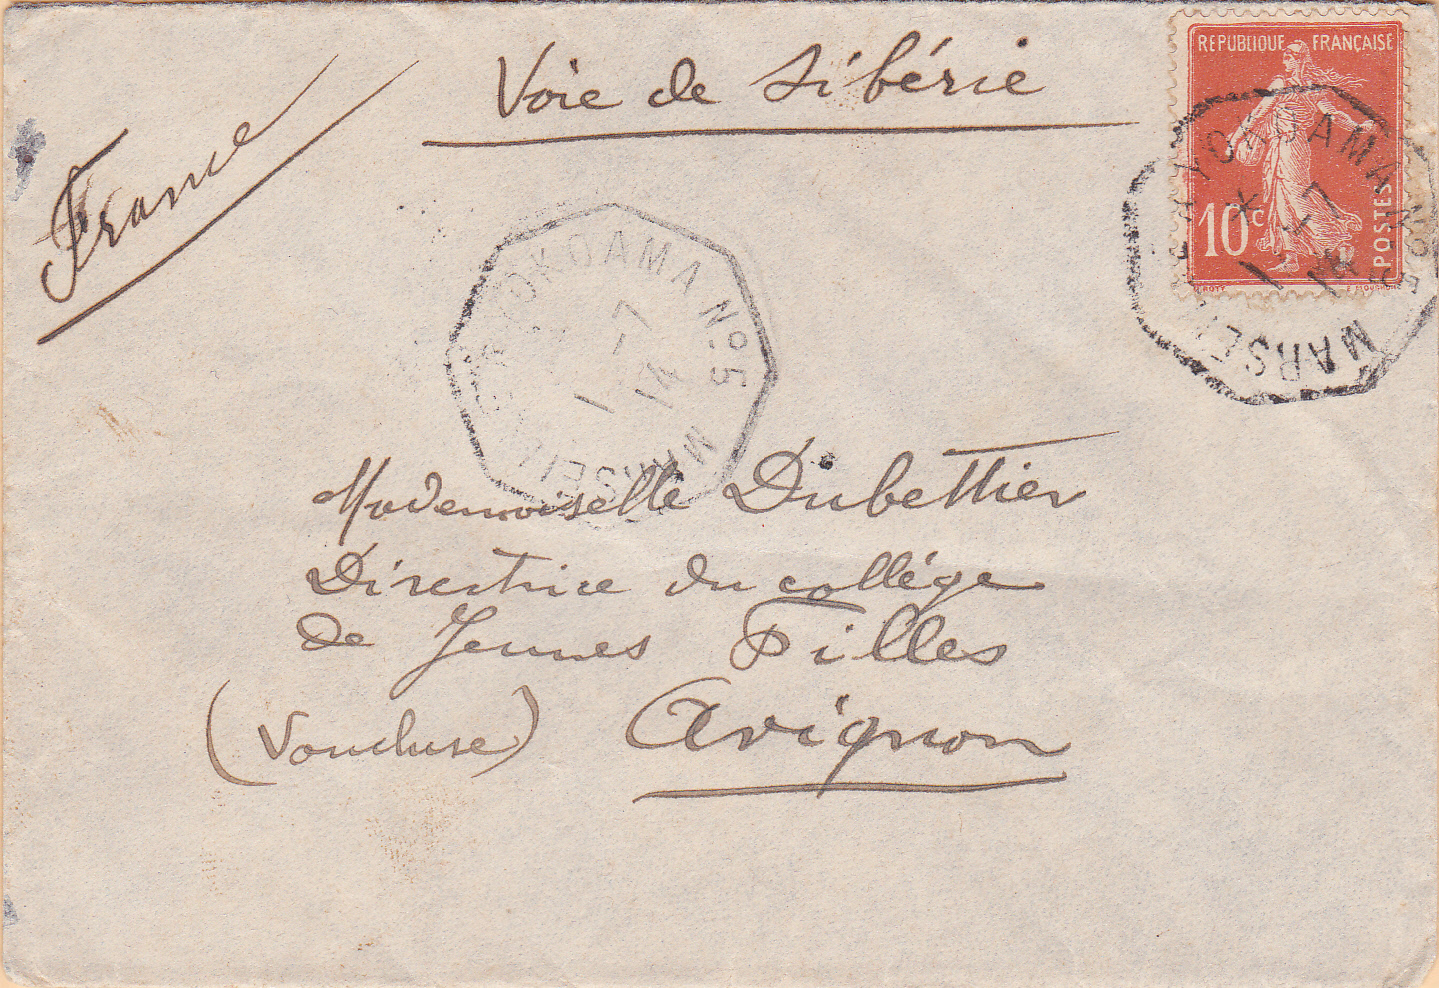 Voie de Sibérie
France
REPUBLIQUE FRANÇAISE
10c
POSTES
O. ROTY
E. MOUCHON
YOKOAMA Nº5
1 -7
14
MARSEILLE
YOKOAMA Nº5
1 -7
14
MARSEILLE
Mademoiselle Dubettier
Directrice du collége
de Jeunes Filles
(Vaucluse) Avignon